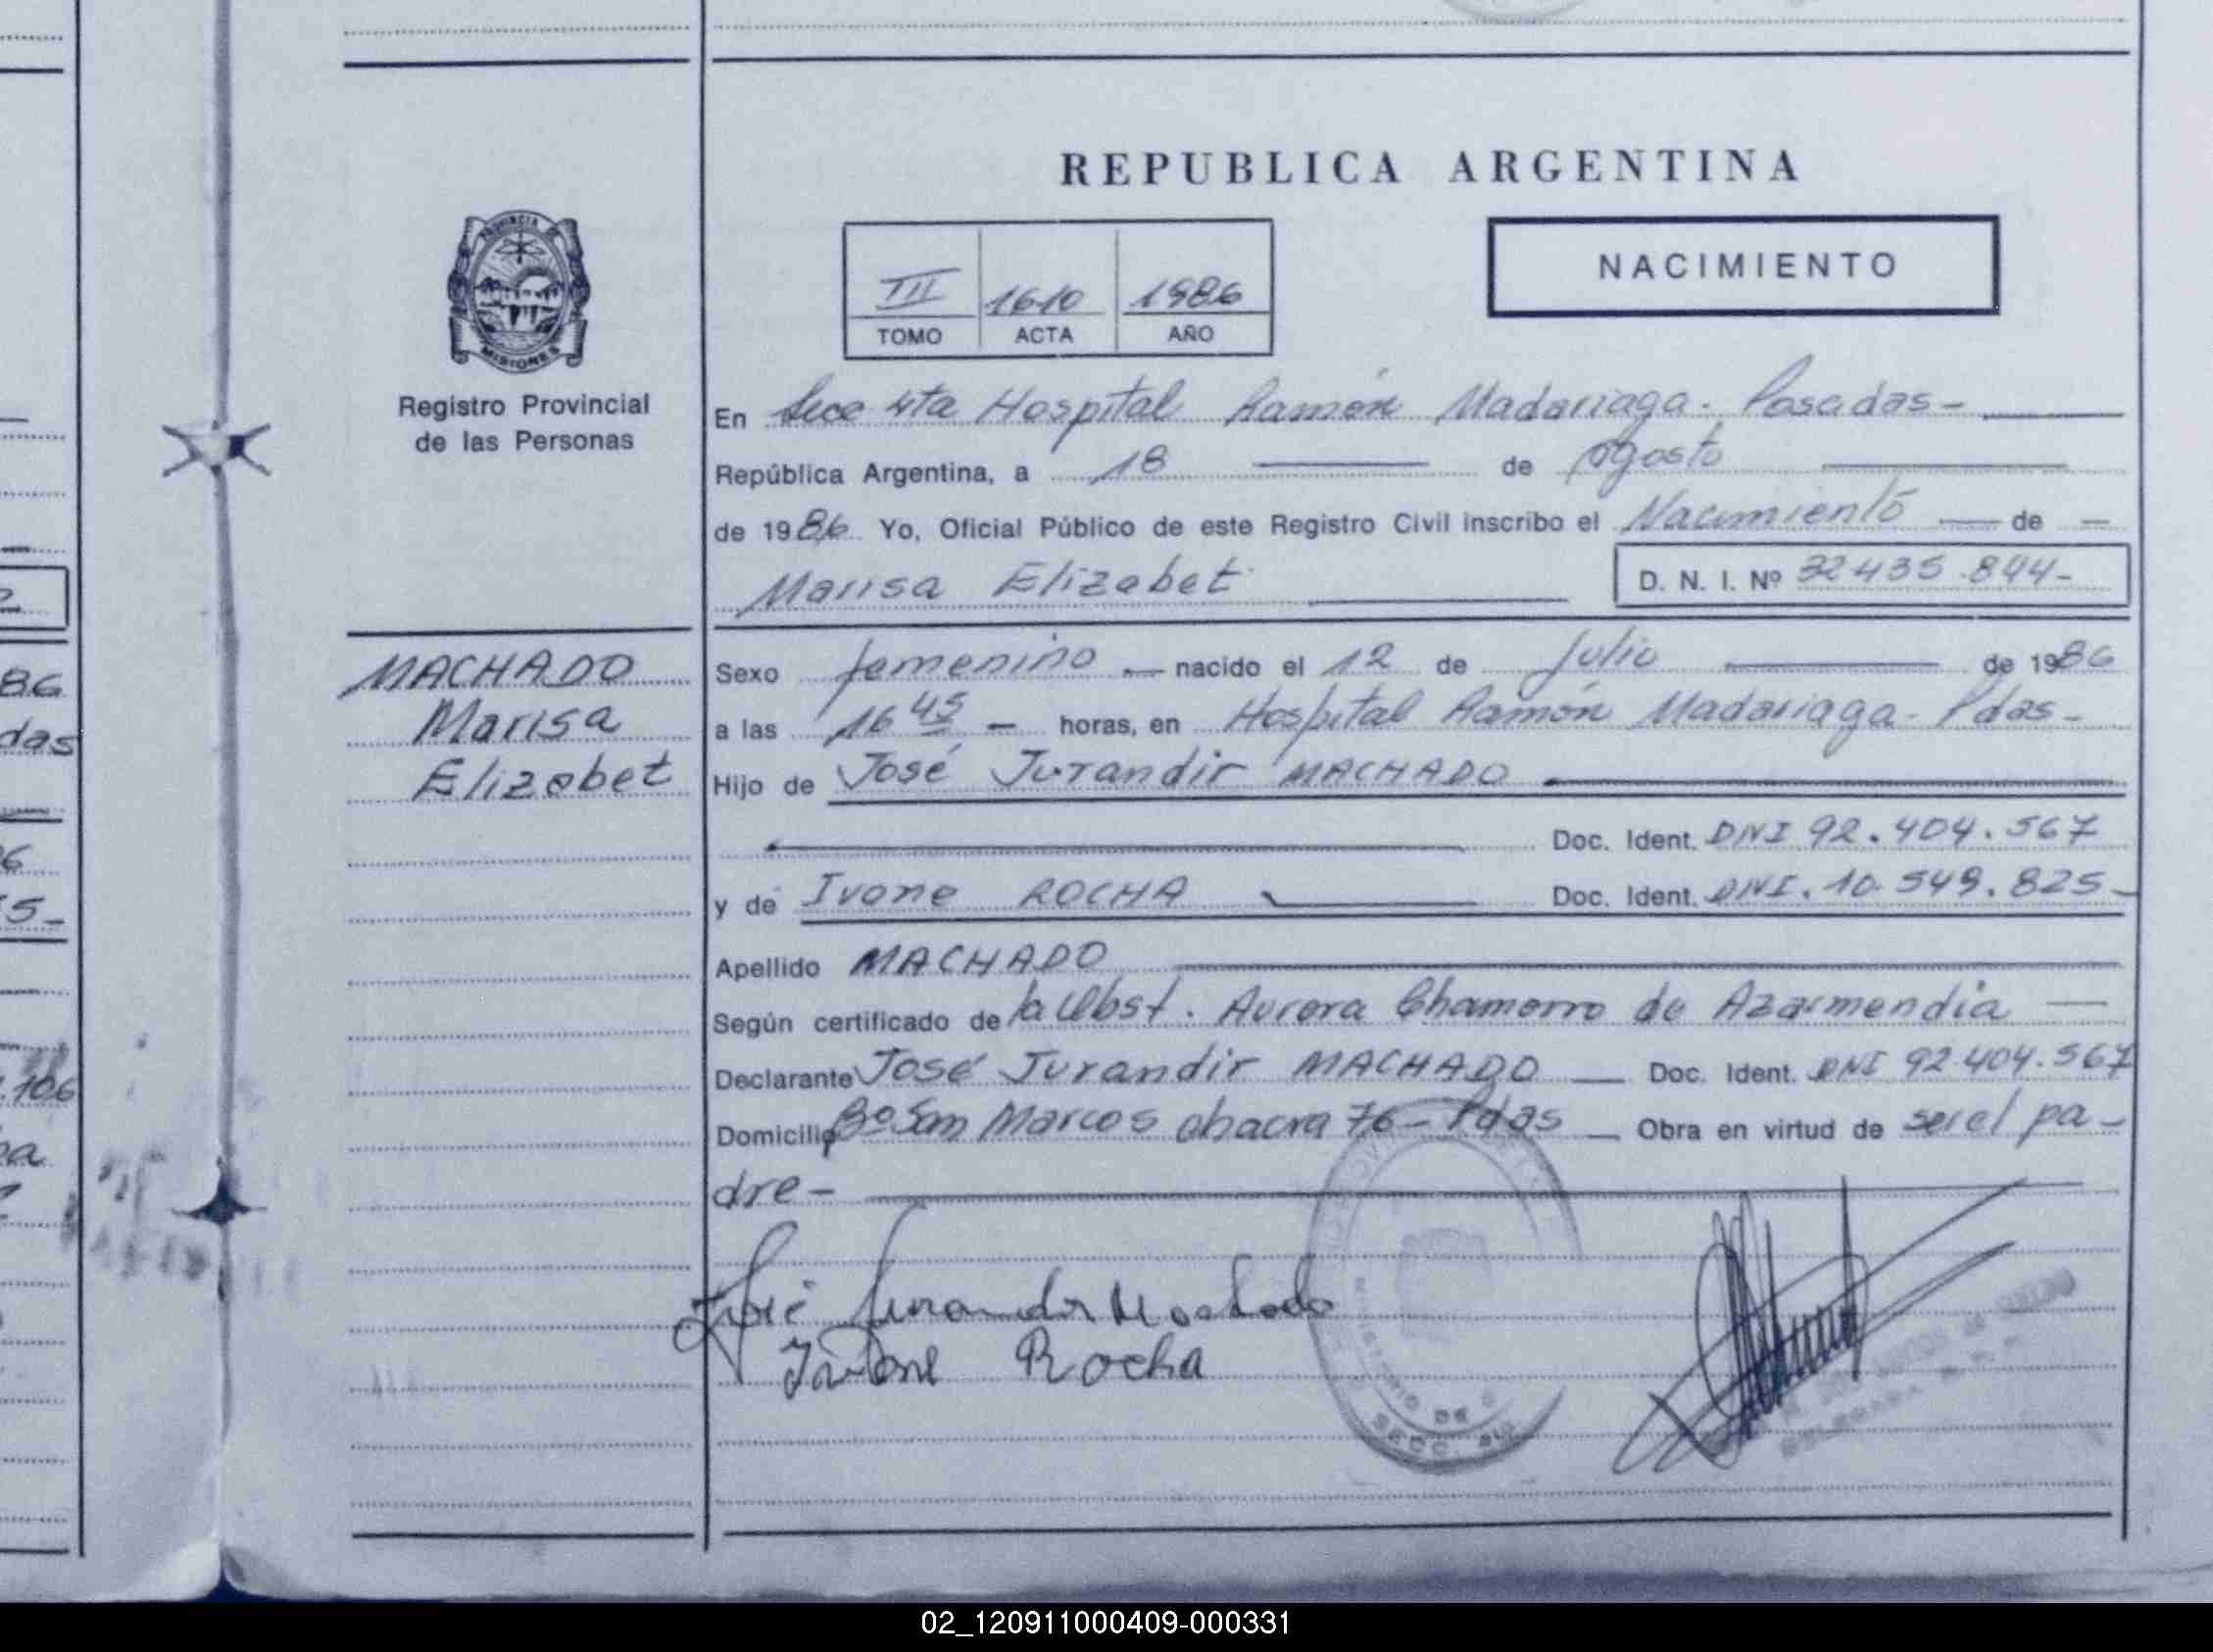 REPUBLICA ARGENTINA
NACIMIENTO
PROVINCIA DE
MISIONES
III 1610 1986
TOMO ACTA AÑO
Registro Provincial
de las Personas
En Secc 4ta Hospital Ramón Madariaga - Posadas -
República Argentina, a 18 de Agosto
de 1986 Yo, Oficial Público de este Registro Civil inscribo el Nacimiento de
Marisa Elizabet D. N. I. Nº 32435.844-
MACHADO
Marisa
Elizabet
Sexo femenino nacido el 12 de Julio de 1986
a las 16 45 horas, en Hospital Ramón Madariaga - Pdas -
Hijo de José Jurandir MACHADO
Doc. Ident. DNI 92.404.567
y de Ivone ROCHA Doc. Ident. DNI. 10.549.825-
Apellido MACHADO
Según certificado de la Obst. Aurora Chamorro de Azarmendia
Declarante José Jurandir MACHADO Doc. Ident. DNI 92.404.567
Domicilio Bº San Marcos chacra 76 - Pdas Obra en virtud de ser el pa-
dre -
José Jurandir Machado
Ivone Rocha
MINISTERIO DE
SECC.
86
das
106
02_120911000409-000331